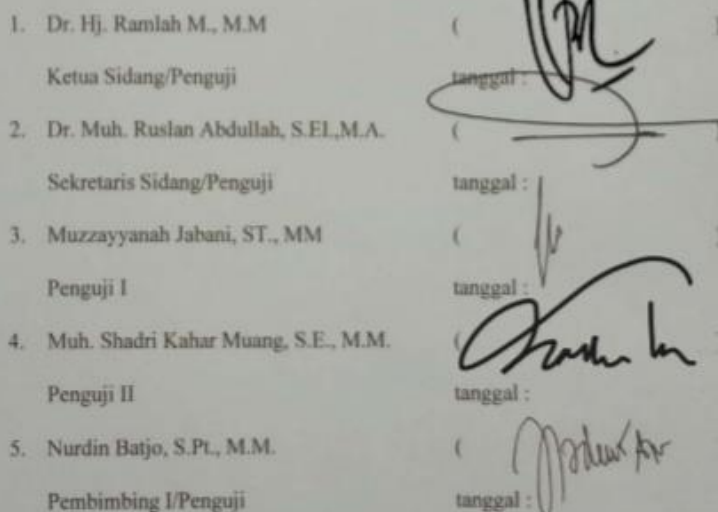 1. Dr. Hj. Ramlah M., M.M (
Ketua Sidang/Penguji tanggal :
2. Dr. Muh. Ruslan Abdullah, S.EI.,M.A. (
Sekretaris Sidang/Penguji tanggal :
3. Muzzayyanah Jabani, ST., MM (
Penguji I tanggal :
4. Muh. Shadri Kahar Muang, S.E., M.M. (
Penguji II tanggal :
5. Nurdin Batjo, S.Pt., M.M. (
Pembimbing I/Penguji tanggal :